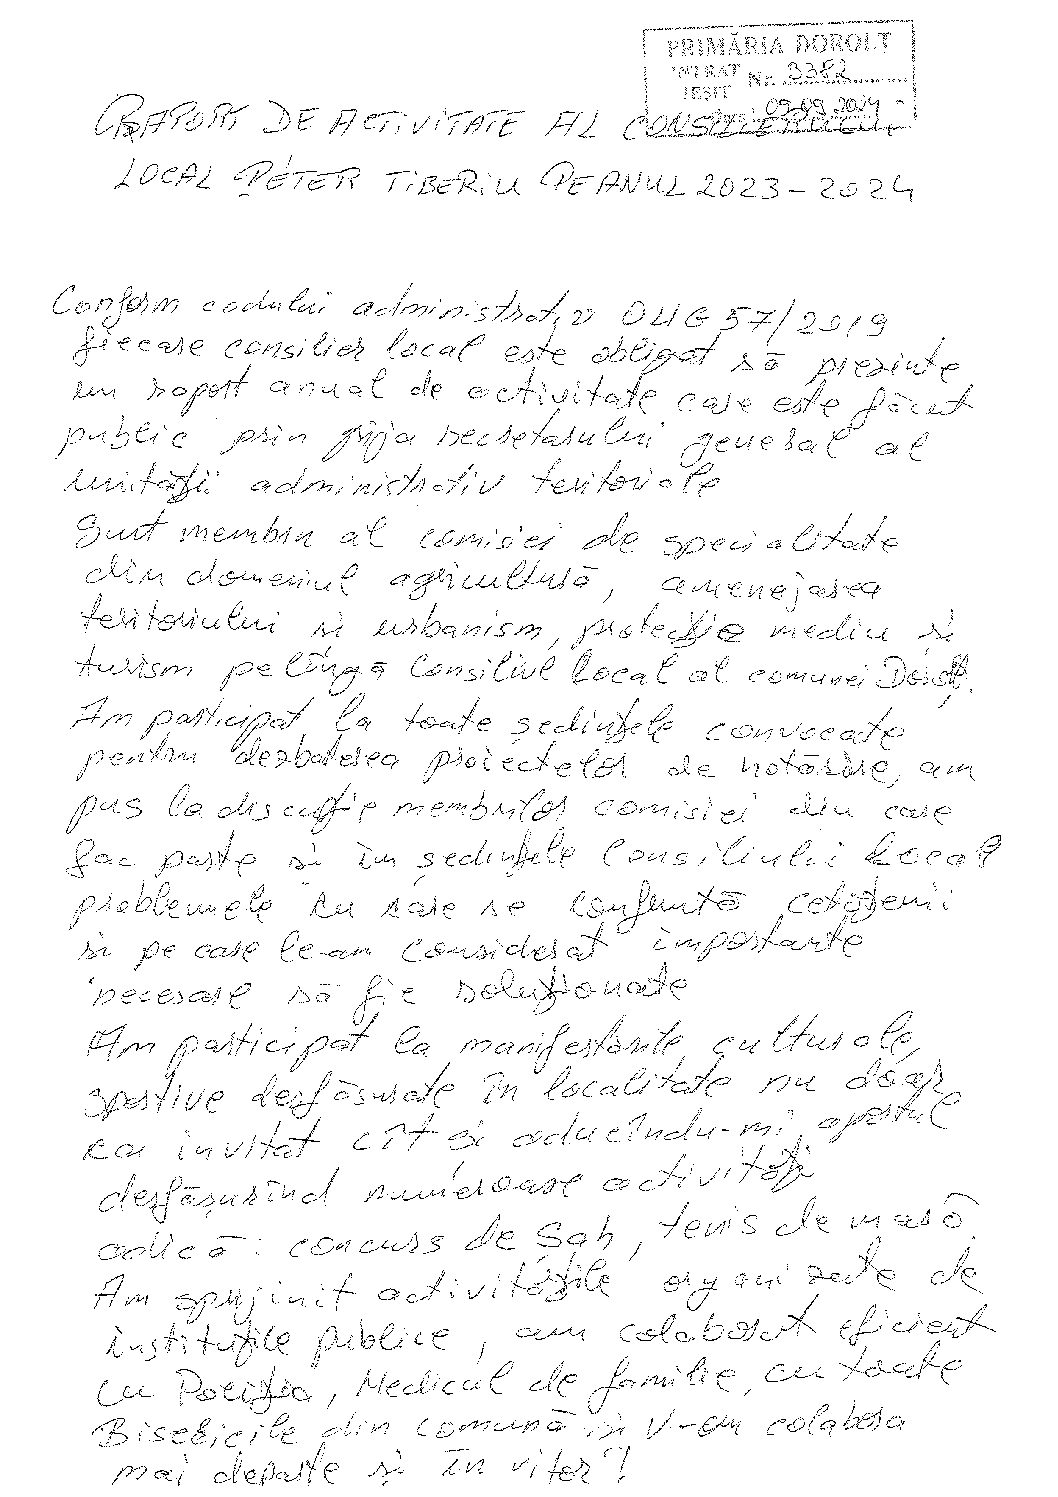 PRIMĂRIA DOROLȚ
INTRAT
IEȘIT
Nr. 3382
09.09.2024
RAPORT DE ACTIVITATE AL CONSILIERULUI
LOCAL PÉTER TIBERIU PE ANUL 2023-2024
Conform codului administrativ OUG 57/2019
fiecare consilier local este obligat să prezinte
un raport anual de activitate care este făcut
public prin grija secretarului general al
unității administrativ teritoriale
Sunt membru al comisiei de specialitate
din domeniul agricultură, amenejarea
teritoriului și urbanism, protecție mediu și
turism pe lîngă Consiliul Local al comunei Dorolț.
Am participat la toate ședințele convocate
pentru dezbaterea proiectelor de hotărîre, am
pus la discuție membrilor comisiei din care
fac parte și în ședințele Consiliului Local
problemele cu care se confruntă cetățenii
și pe care le-am considerat importante
necesare să fie soluționate
Am participat la manifestările culturale,
sportive desfășurate în localitate nu doar
ca invitat cît și aducîndu-mi aportul
desfășurînd numeroase activități
adică: concurs de Șah, tenis de masă
Am sprijinit activitățile organizate de
instituțiile publice, am colaborat eficient
cu Poliția, Medicul de familie, cu toate
Bisericile din comună și v-om colabora
mai departe și în viitor"!